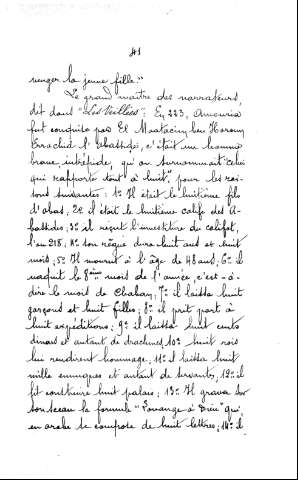 41
venger la jeune fille."
Le grand maître des narrateurs,
dit dans "Les Veillées": En 223, Amouria
fut conquise par El Maatacim ben Haroun
Errachid l'Abasside, c'était un homme
brave, intrépide, qui on surnommait "celui
qui rapporte tout à huit" pour les rai-
sons suivantes: 1º Il était le huitième fils
d'abas, 2º il était le huitième calife des A-
bassides; 3º il reçut l'investiture de califat,
l'an 218; 4º son règne dura huit ans et huit
mois; 5º Il mourut à l'âge de 48 ans, 6º il
naquit le 8ème mois de l'année, c'est-à-
dire le mois de Chaban, 7º il laissa huit
garçons et huit filles; 8º il prit part à
huit expéditions; 9º il laissa huit cents
dinars et autant de drachmes, 10º huit rois
lui rendirent hommage, 11º il laissa huit
mille eunuques et autant de servants, 12º il
fit construire huit palais; 13º Il grava sur
son sceau la formule "Louange à Dieu" qui,
en arabe se compose de huit lettres; 14º il